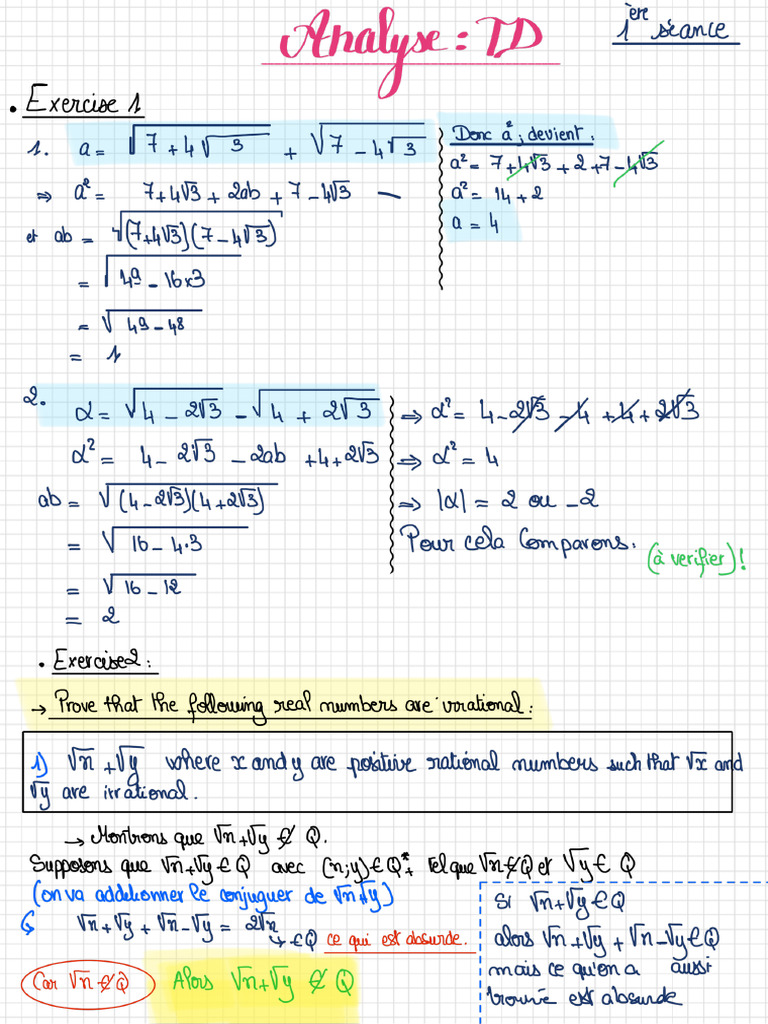 Analyse : TD
1ère séance
• Exercise 1
1. a = √(7 + 4√3) + √(7 - 4√3)
⇒ a² = 7 + 4√3 + 2ab + 7 - 4√3
et ab = √((7+4√3)(7-4√3))
= √(49 - 16×3)
= √(49 - 48)
= 1
Donc a² ; devient :
a² = 7 + 4√3 + 2 + 7 - 4√3
a² = 14 + 2
a = 4
2. α = √(4 - 2√3) - √(4 + 2√3)
α² = 4 - 2√3 - 2ab + 4 + 2√3
ab = √((4-2√3)(4+2√3))
= √(16 - 4·3)
= √(16 - 12)
= 2
⇒ α² = 4 - 2√3 - 4 + 4 + 2√3
⇒ α² = 4
⇒ |α| = 2 ou -2
Pour cela Comparons :
(à verifier) !
• Exercise 2 :
→ Prove that the following real numbers are irrational :
1) √x + √y where x and y are positive rational numbers such that √x and
√y are irrational.
→ Montrons que √x + √y ∉ Q.
Supposons que √x + √y ∈ Q avec (x; y) ∈ Q*₊ tel que √x ∉ Q et √y ∈ Q
(on va additionner le conjuguer de √x + √y)
↳ √x + √y + √x - √y = 2√x
↳ ∈ Q ce qui est absurde.
Car √x ∉ Q
Alors √x + √y ∉ Q
Si √x + √y ∈ Q
alors √x + √y + √x - √y ∈ Q
mais ce qu'on a aussi
trouvé est absurde